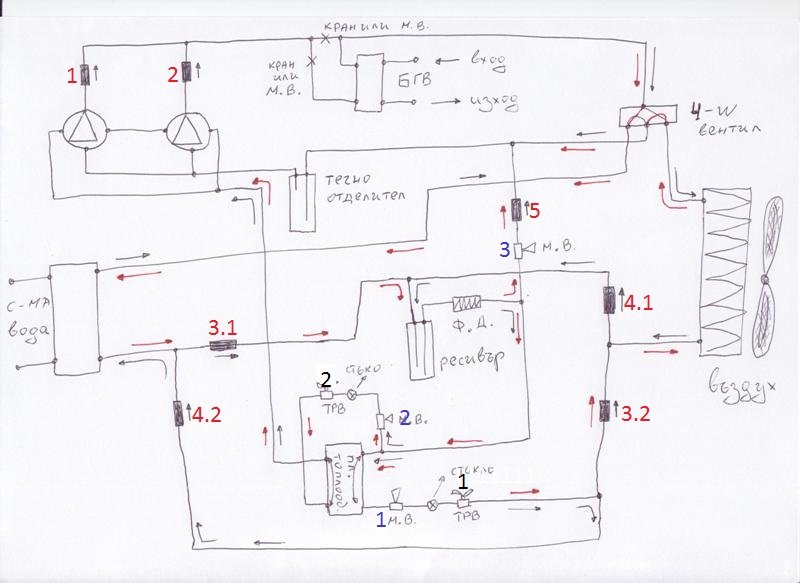 КРАН ИЛИ М.В.
КРАН
ИЛИ
М.В.
БГВ
ВХОД
ИЗХОД
1
2
4-W
ВЕНТИЛ
ТЕЧНО
ОТДЕЛИТЕЛ
5
3
М.В.
С-МА
ВОДА
3.1
4.1
Ф.Д.
РЕСИВЪР
2.
СТЪКЛО
ТРВ
2
М.В.
4.2
3.2
ВЪЗДУХ
ПЛ.
ТОПЛООБ.
СТЪКЛО
1
1
М.В.
ТРВ